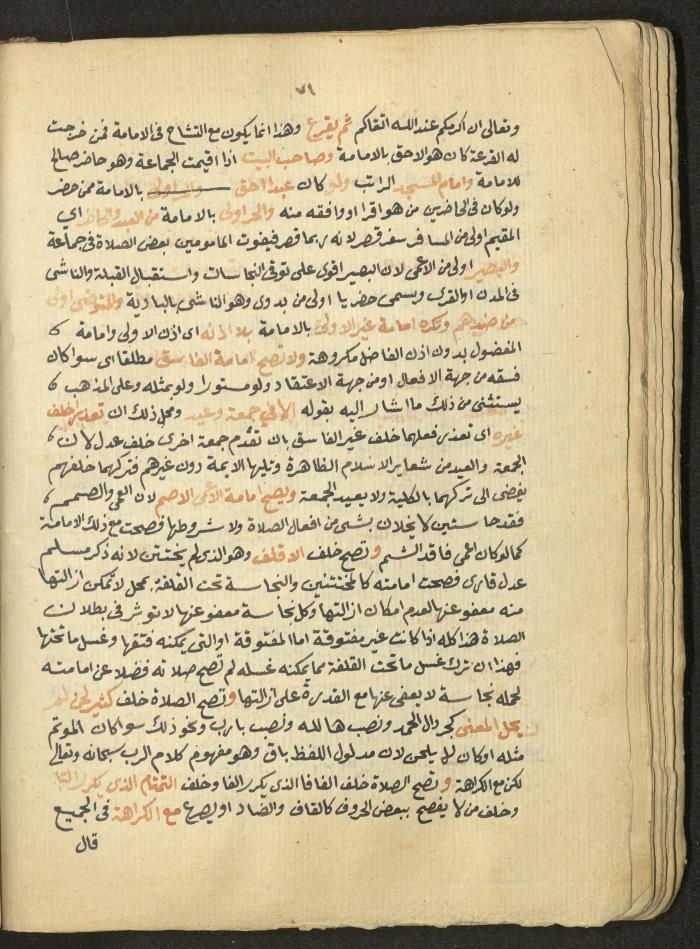 ٧١
وتعالى ان اكرمكم عند الله اتقاكم ثم يقرع وهذا انما يكون مع التشاح في الامامة فمن خرجت
له القرعة كان هو الاحق بالامامة وصاحب البيت اذا اقيمت الجماعة وهو حاضر صالح
للامامة وامام المسجد الراتب ولو كان عبدا احق بالامامة ممن حضر
ولو كان في الحاضرين من هو اقرا او وافقه منه والحر اولى بالامامة من العبد والحاضر اي
المقيم اولى من المسافر سفر قصر لانه ربما قصر فيفوت المامومين بعض الصلاة في جماعة
والبصير اولى من الاعمى لان البصير اقوى على توقي النجاسات واستقبال القبلة والناشى
في المدن او القرى ويسمى حضريا اولى من بدوى وهو الناشى بالبادية والمتوضى اولى
من ضدهم وتكره امامة غير الاولى بالامامة بلا اذنه اى اذن الاولى وامامة
المفضول بدون اذن الفاضل مكروهة ولا تصح امامة الفاسق مطلقا اى سوا كان
فسقه من جهة الافعال او من جهة الاعتقاد ولو مستورا ولو بمثله وعلى المذهب
يستثنى من ذلك ما اشار اليه بقوله الا في جمعة وعيد ومحل ذلك ان تعذرا خلف
غيره اى تعذر فعلهما خلف غير الفاسق بان تقدم جمعة اخرى خلف عدل لان
الجمعة والعيد من شعاير الاسلام الظاهرة وتليها الايمة دون غيرهم فتركهما خلفهم
يفضى الى تركهما بالكلية ولا يعيد الجمعة ويصح امامة الاعمى الاصم لان العمى والصمم
فقد حاستين لا يخلان بشى من افعال الصلاة ولا شروطها فصحت مع ذلك الامامة
كما لو كان اعمى فاقد الشم وتصح خلف الاقلف وهو الذى لم يختتن لانه ذكر مسلم
عدل قارى فصحت امامته كالمختتنين والنجاسة تحت القلفة بمحل لا تمكن ازالتها
منه معفو عنها لعدم امكان ازالتها وكل نجاسة معفو عنها لا توثر في بطلان
الصلاة هذا كله اذا كانت غير مفتوقة اما المفتوقة او التى يمكنه فتقها وغسل ما تحتها
فهذا ان ترك غسل ما تحت القلفة مما يمكنه غسله لم تصح صلاته فضلا عن امامته
لحمله نجاسة لا يعفى عنها مع القدرة على ازالتها وتصح الصلاة خلف كثير لحن لم
يحل المعنى كجر دال الحمد ونصب ها لله ونصب با رب ونحو ذلك سوا كان الموتم
مثله او كان لا يلحن لان مدلول اللفظ باق وهو مفهوم كلام الرب سبحانه وتعالى
لكن مع الكراهة وتصح الصلاة خلف الفافا الذى يكرر الفا وخلف التمتام الذى يكرر التا
وخلف من لا يفصح ببعض الحروف كالقاف والضاد او يصرع مع الكراهة في الجميع
قال